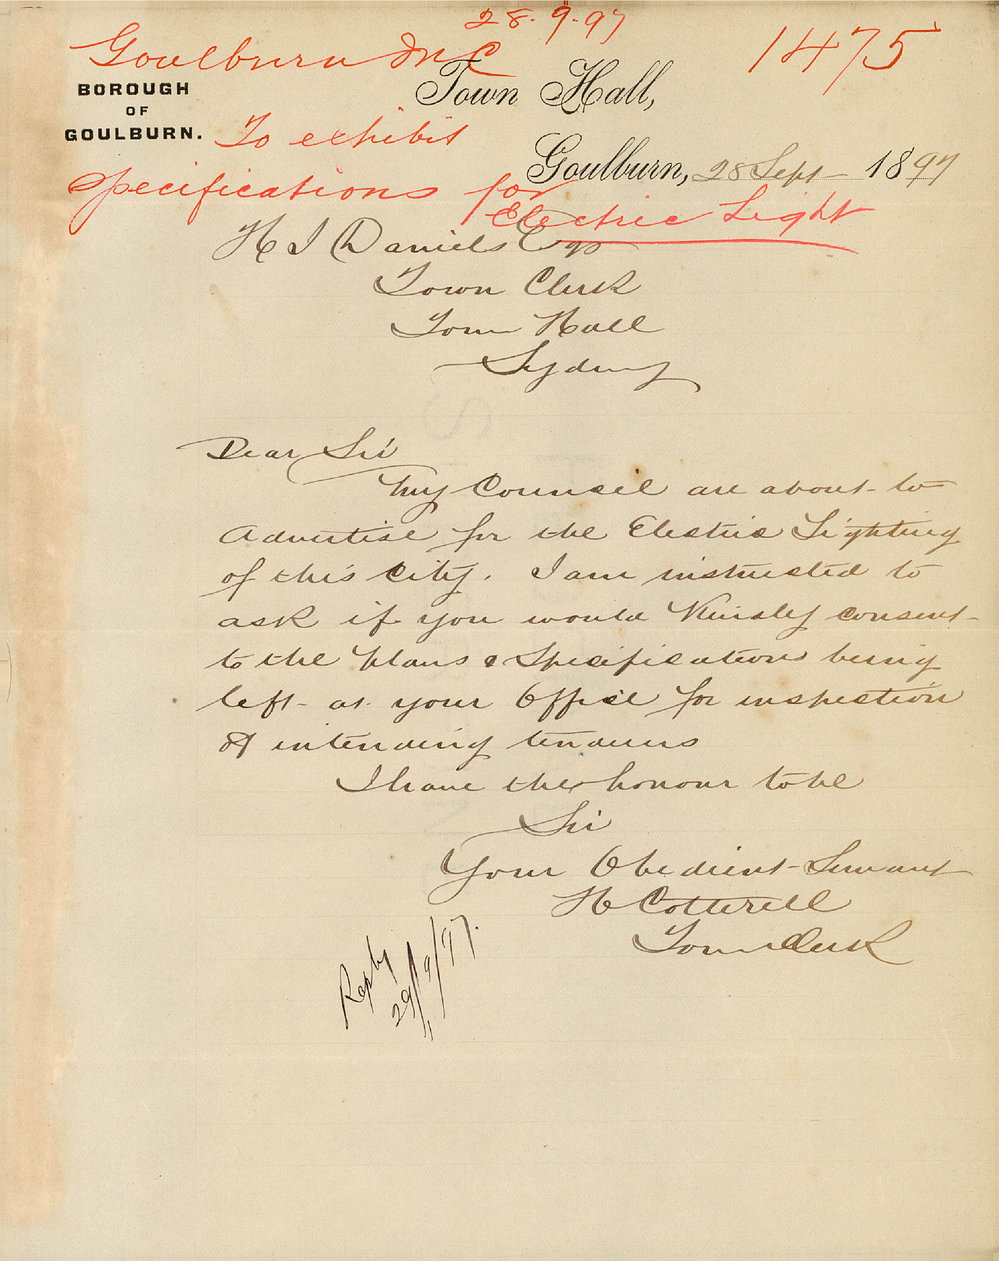 28.9.97
Goulburn M C
1475
BOROUGH
OF
GOULBURN.
Town Hall,
To exhibit
Goulburn, 28 Sept 1897
specifications for
Electric Light
H J Daniels Esq
Town Clerk
Town Hall
Sydney
Dear Sir
My Counsel are about to
Advertise for the Electric Lighting
of this City. I am instructed to
ask if you would Kindly consent
to the plans & Specifications being
left at your Office for inspection
of intending tenderers
I have the honour to be
Sir
Your Obedient Servant
H Cotterell
Town Clerk
Reply
29/9/97.